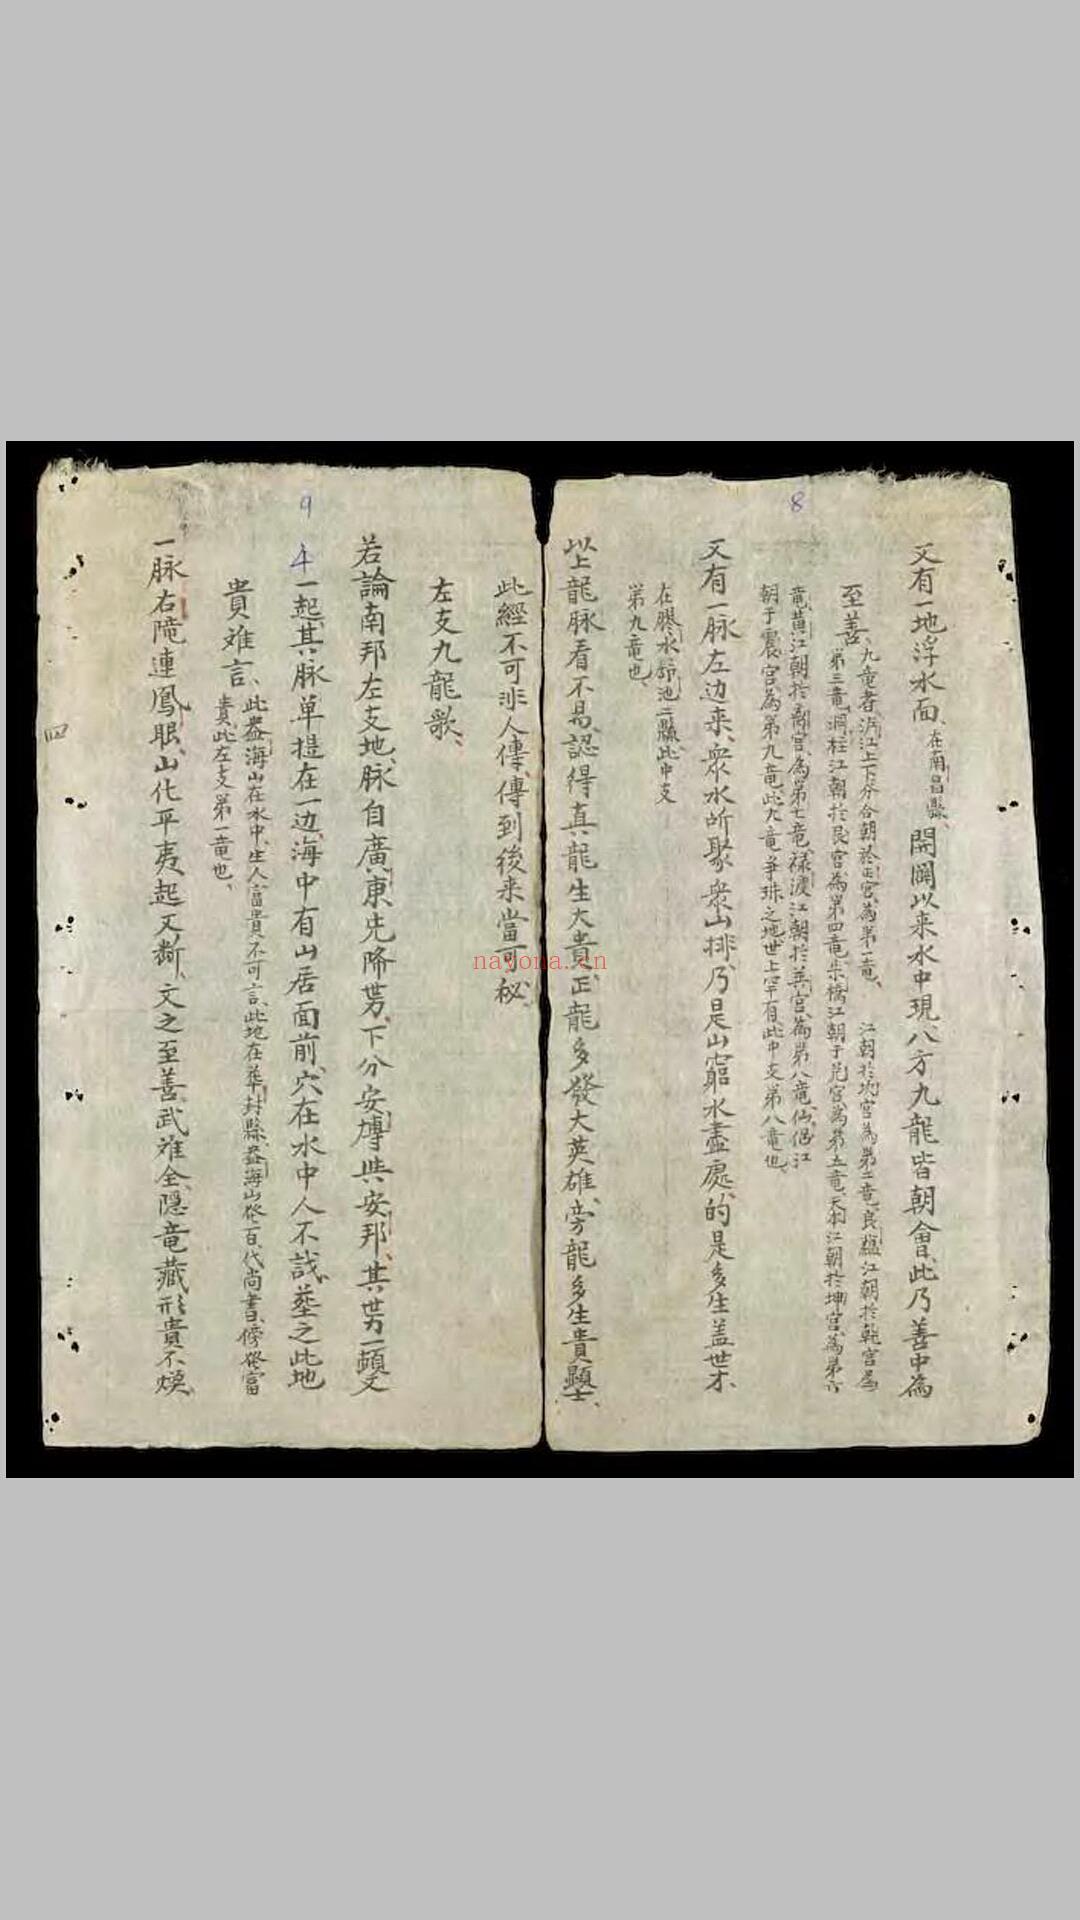 8
又有一地浮水面、在南昌縣、開闢以来水中現八方九龍皆朝會、此乃善中為
至善、九竜者泸江上下分合朝於正宮、為第一竜、 江朝於坎宮為第二竜、良蕴江朝於乾宮為
第三竜、洞柱江朝於艮宮為第四竜、朱橋江朝于兑宮為第五竜、天羽江朝於坤宮為第六
竜、黄江朝於離宮、為第七竜、禄渡江朝於巽宮、為第八竜、仙侣江
朝于震宮為第九竜、此九竜争珠之地世上罕有、此中支第八竜也、
又有一脉左边来、衆水所聚衆山排、乃是山窮水盡處、的是多生盖世才、
在膠水舒池二縣、此中支
第九竜也、
以上龍脉看不易、認得真龍生大貴、正龍多發大英雄、旁龍多生貴顯士、
此經不可非人傳、傳到後来當可秘、
nayona.cn
左支九龍歌、
若論南邦左支地、脉自廣東先降势、下分安博与安邦、其势一頓又
9
一起、其脉单提在一边、海中有山居面前、穴在水中人不識、塟之此地
貴难言、此盎海山在水中、生人富貴不可言、此地在華封縣、盎海山發百代尚書、傍發富
貴、此左支第一竜也、
四
一脉右隴連鳳眼、山化平夷、起又断、文之至善、武难全、隐竜藏形貴不煥、